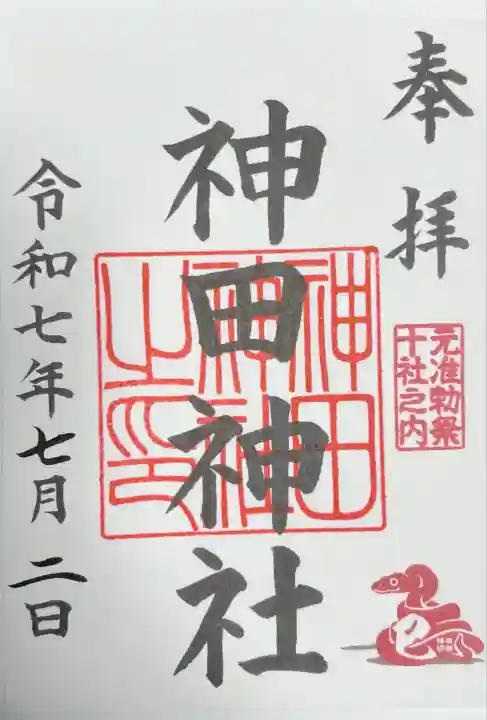 奉拝
元准勅祭
十社之内
神田神社
神田
神社
之印
令和七年七月二日